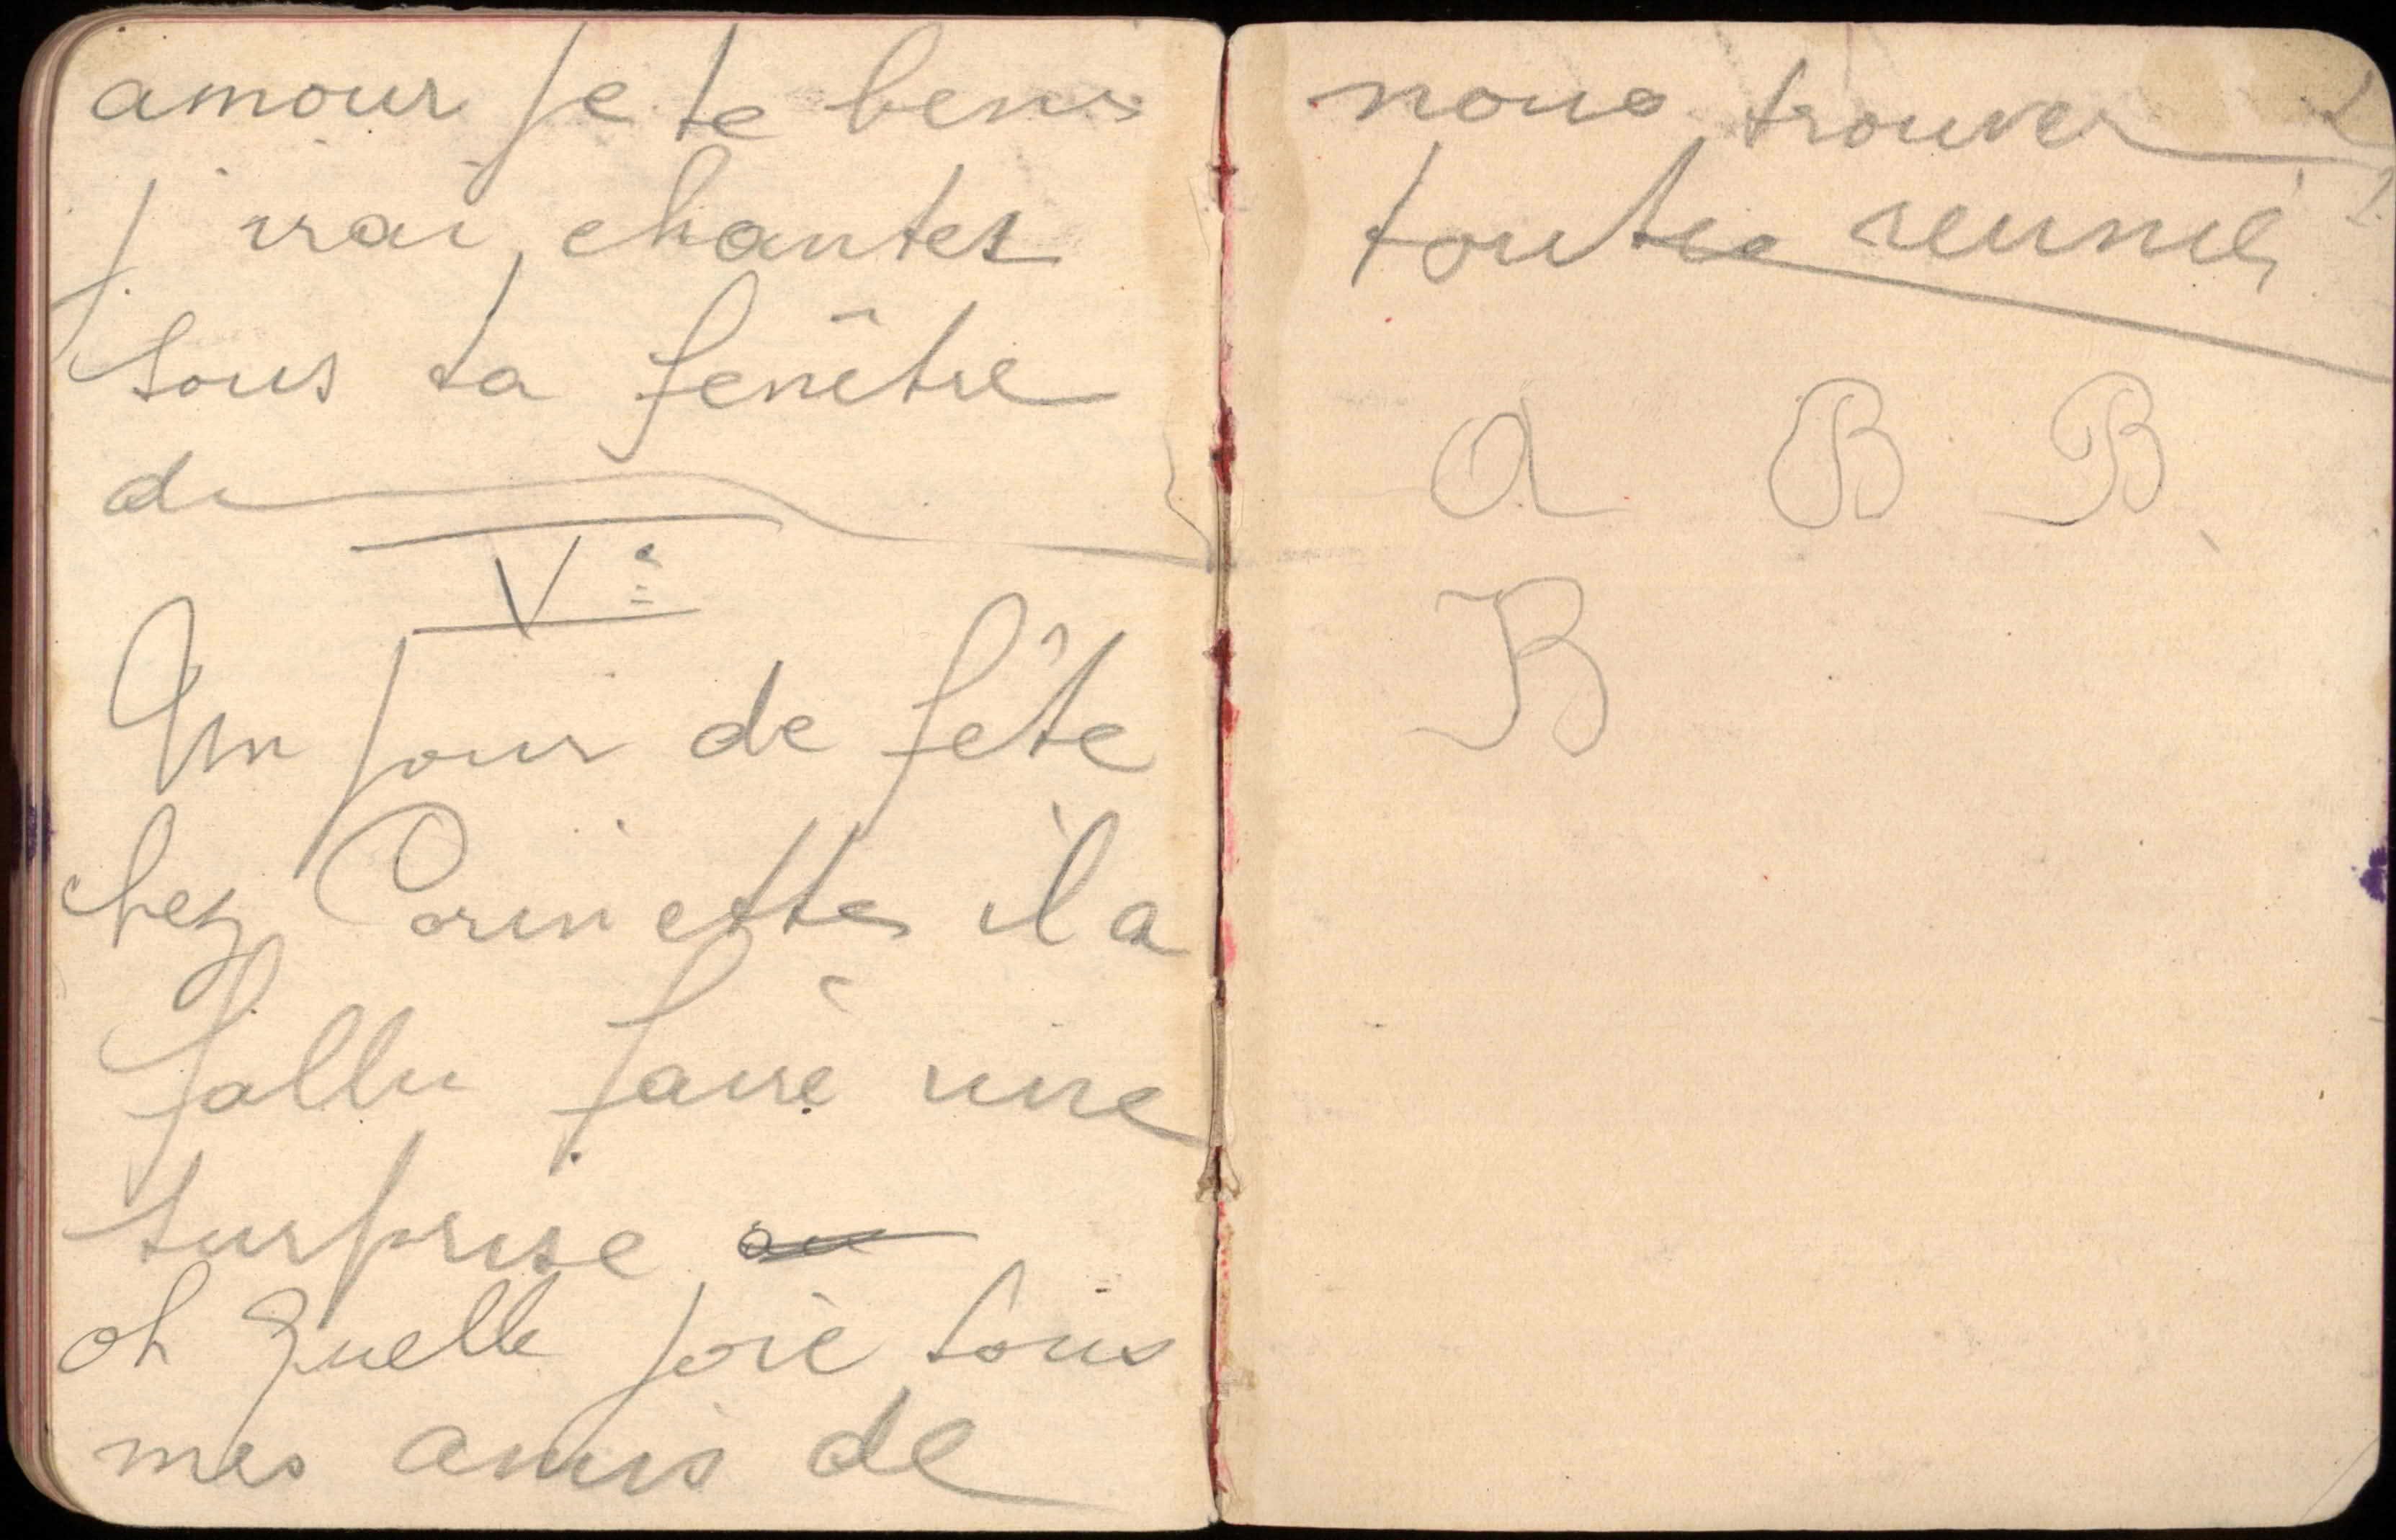 amour je te benis
j irai chanter
sous ta fenêtre
de
Ve
Un jour de fête
chez Corinette il a
fallu faire une
surprise
oh quelle joie tous
mes amis de
nous trouver
toutes reunie
a B B
B